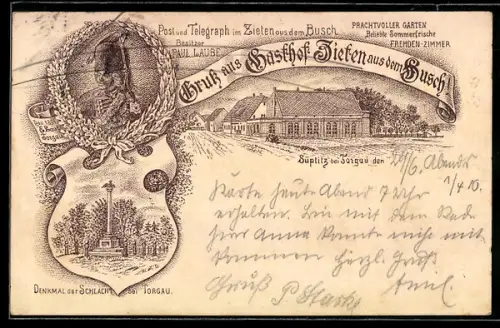 Post und Telegraph im Zieten aus dem Busch.
Besitzer
PAUL LAUBE
PRACHTVOLLER GARTEN
Beliebte Sommerfrische
FREMDEN-ZIMMER
Gruß aus Gasthof Zieten aus dem Busch!
Süptitz bei Torgau den
Abends
Karte heute Abend 7 Uhr
erhalten. Bin mit dem Rade
hier Anna konnte nicht mit
kommen herzl. Gruß
Gruß P. Stark Emil.
DENKMAL der SCHLACHT bei TORGAU.